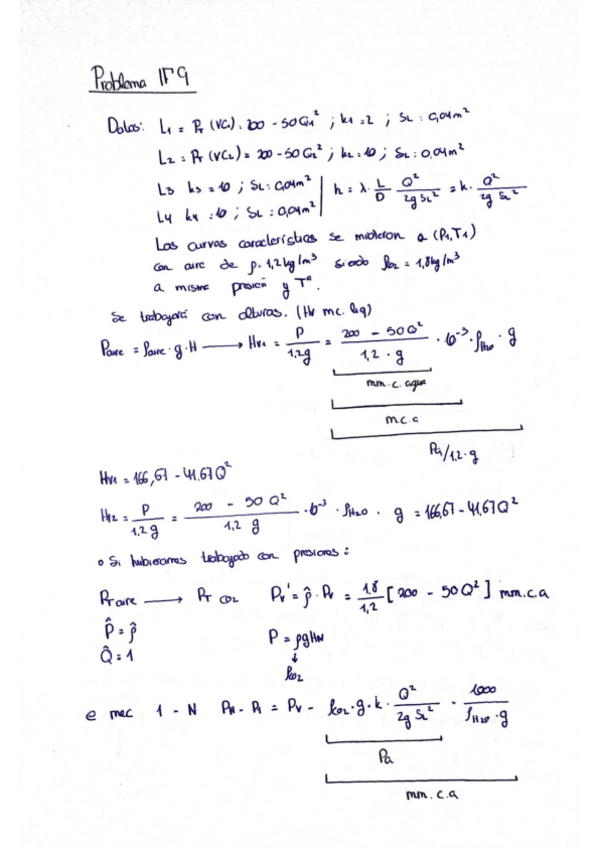 Problema 1F9
Datos: L1 = PT (VC1) = 200 - 50Q1² ; k1 = 2 ; SL : 0,04m²
L2 = PT (VC2) = 200 - 50Q2² ; k2 = 10 ; SL : 0,04m²
L3 k3 = 10 ; SL : 0,04m² | h = λ · L/D · Q²/2g SL² = k · Q²/2g SL²
L4 k4 = 10 ; SL : 0,04m²
Las curvas características se midieron a (P1,T1)
con aire de ρ. 1,2 kg/m³ siendo ρCO2 = 1,8kg/m³
a misma presión y Tª.
Se trabajará con alturas. (Hv mc. liq)
Paire = ρaire · g · H ⟶ Hv1 = P/1,2g = (200 - 50Q²)/(1,2 · g) · 10⁻³ · ρH2O · g
mm. c. agua
m.c.a
Pa/1,2·g
Hv1 = 166,67 - 41,67Q²
Hv2 = P/1,2g = (200 - 50Q²)/(1,2 g) · 10⁻³ · ρH2O · g = 166,67 - 41,67Q²
Si hubieramos trabajado con presiones :
PT aire ⟶ PT CO2 Pv' = ρ̂ · Pv = 1,8/1,2 [200 - 50Q²] mm.c.a
P̂ = ρ̂ P = ρgHN
Q̂ = 1 ↓
ρCO2
e mec 1 - N PN - P1 = Pv - ρCO2 · g · k · Q²/2g SL² · 1000/ρH2O · g
Pa
mm. c.a